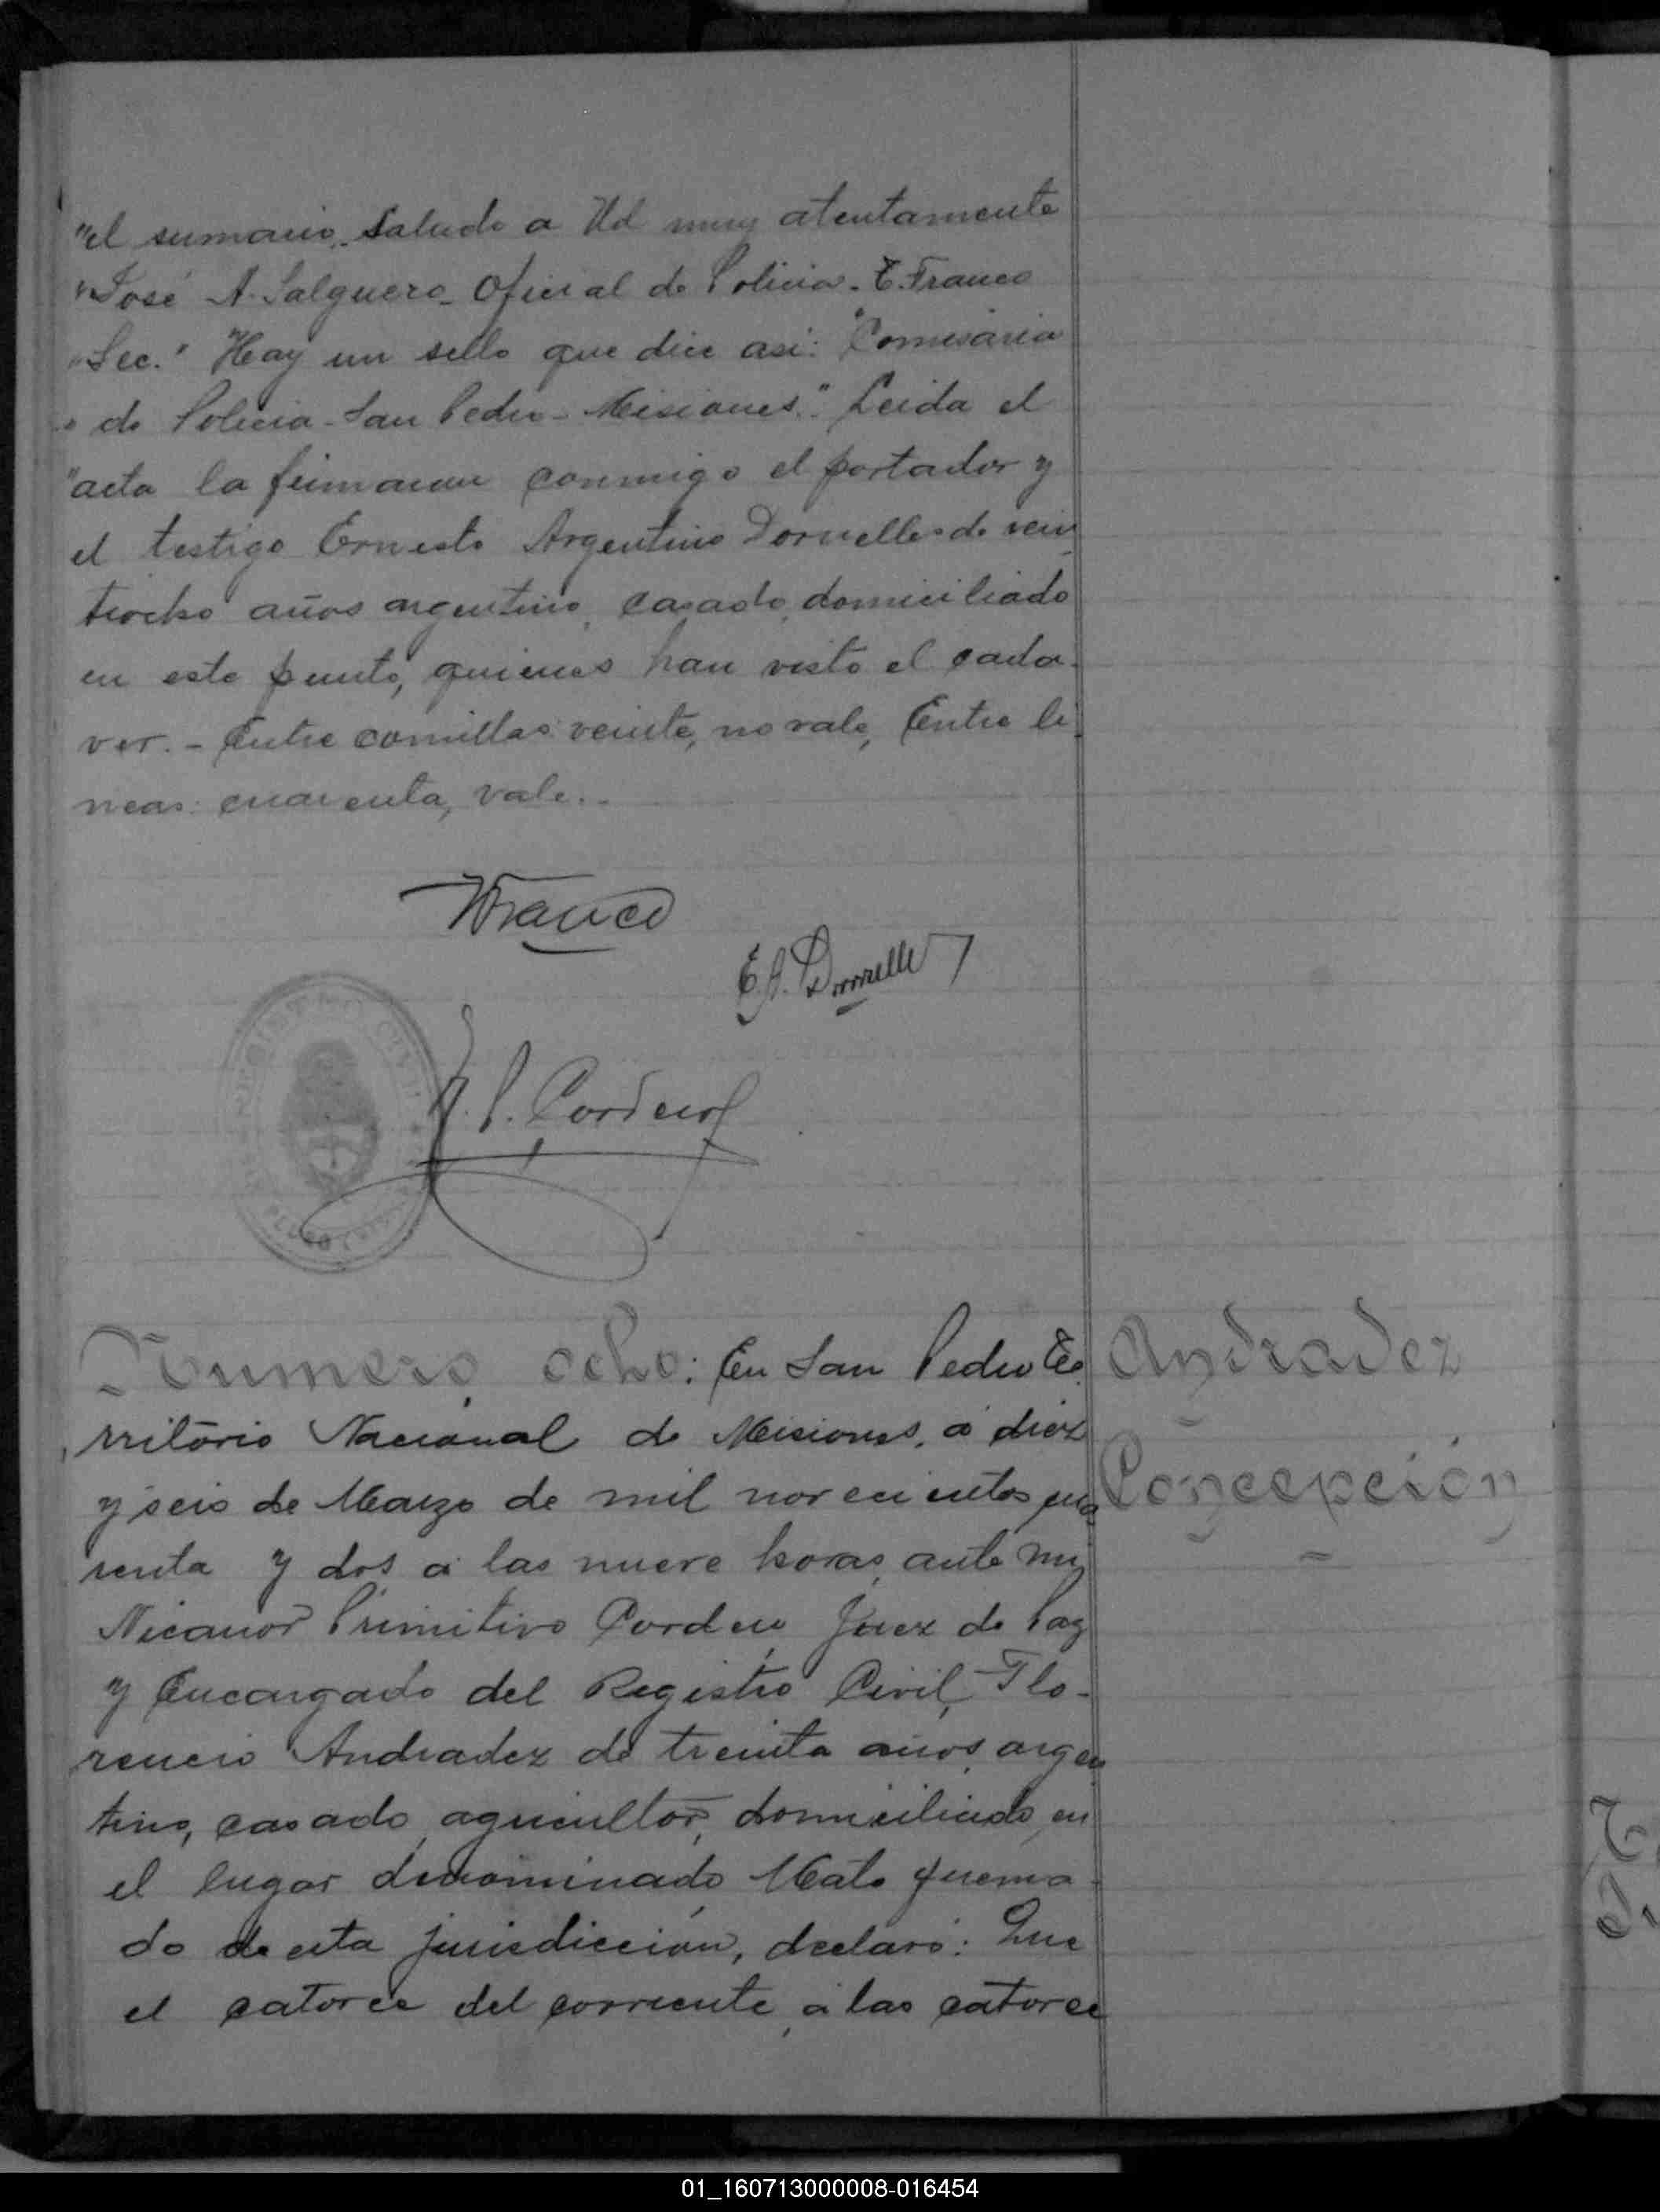 "el sumario. Saludo a Ud muy atentamente
"José A. Salguero- Oficial de Policia. E. Franco
"Sec." Hay un sello que dice asi: "Comisaria
" de Policia - San Pedro - Misiones." Leida el
"acta la firmaron conmigo el portador y
el testigo Ernesto Argentino Dornelles de vein
tiocho años argentino, casado, domiciliado
en este punto, quienes han visto el cada-
ver. - Entre comillas: veinte, no vale, Entre li
neas: cuarenta, vale. -
Franco
E. A. Dornelles
REGISTRO CIVIL
N. P. Cordero
Numero ocho: En San Pedro Te
rritorio Nacional de Misiones, a diez
y seis de Marzo de mil novecientos cua
renta y dos a las nueve horas, ante mi
Nicanor Primitivo Cordero, Juez de Paz
y Encargado del Registro Civil, Flo-
rencio Andradez de treinta años, argen
tino, casado, agricultor, domiciliado en
el lugar denominado Mato quema-
do de esta jurisdiccion, declaró: Que
el catorce del corriente, a las catorce
Andradez
Concepción
01_160713000008-016454